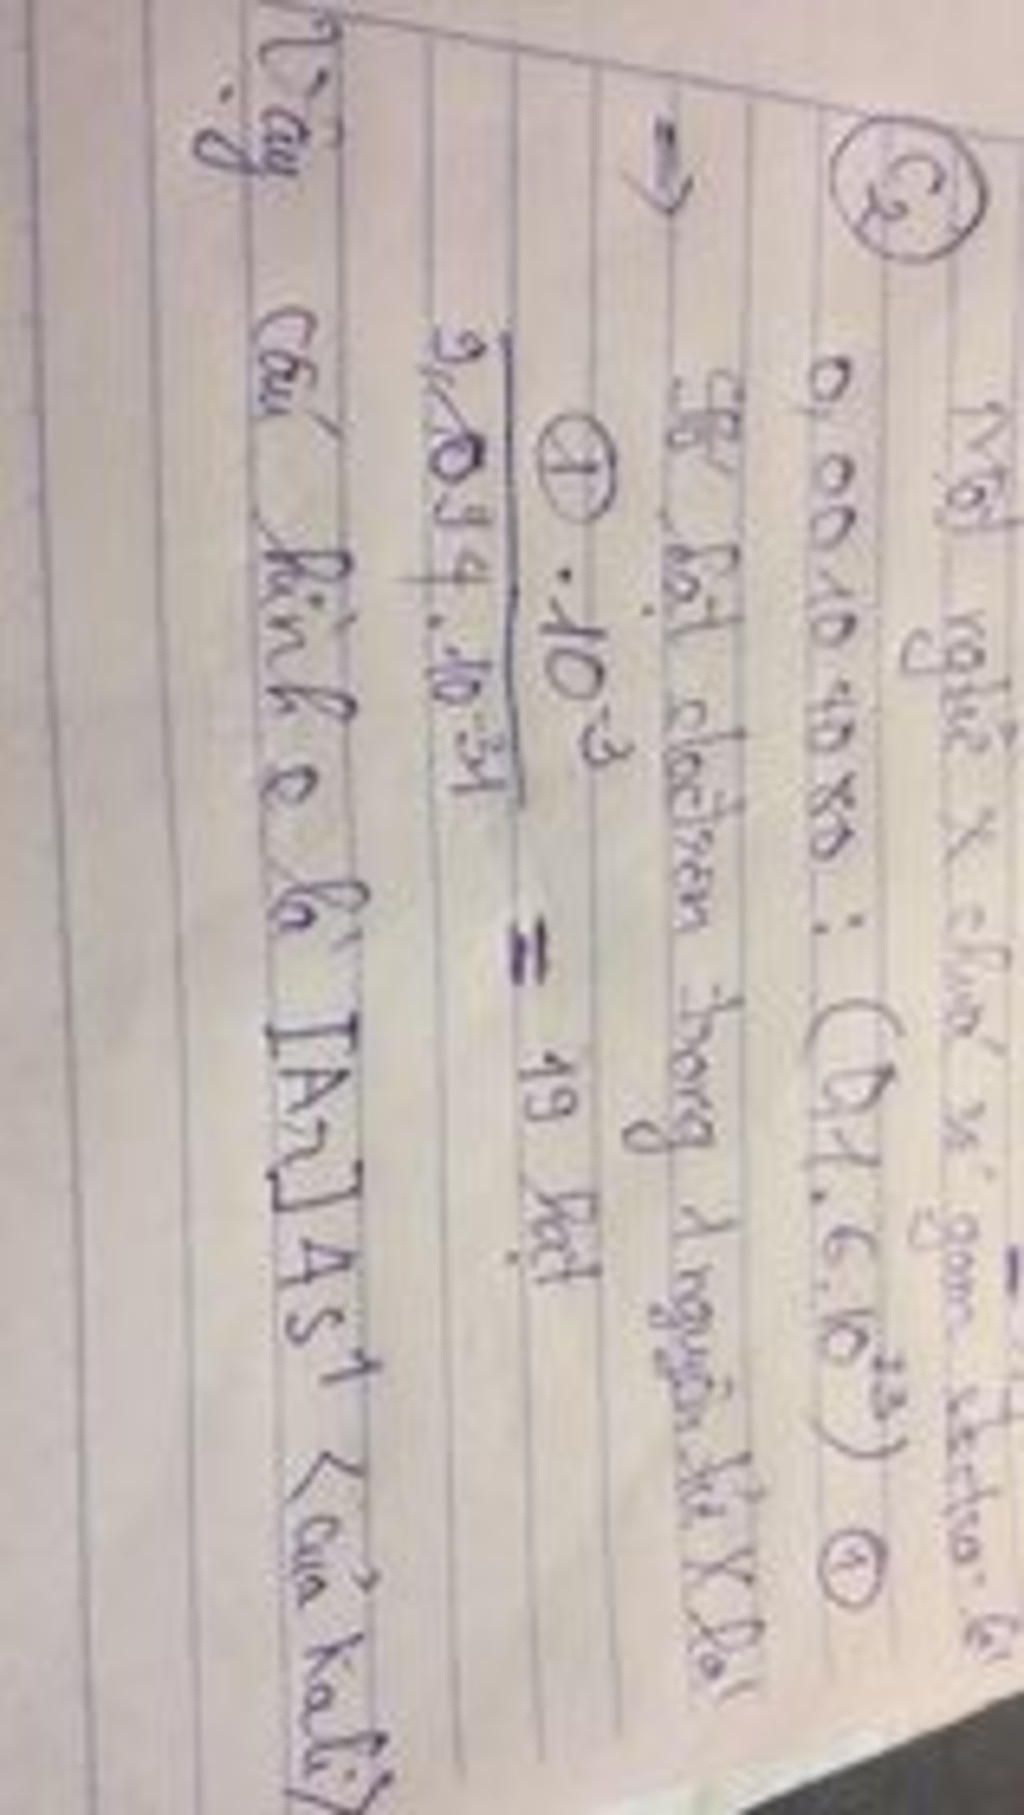 C2 Một nguyên tử X chứa số gam electron là
0,0010480 : (0,1.6.10²³) ①
→ Số hạt electron trong 1 nguyên tử X là
① .10⁻³
9,1094.10⁻³¹
= 19 hạt
Vậy cấu hình e là [Ar]4s¹ <của Kali>